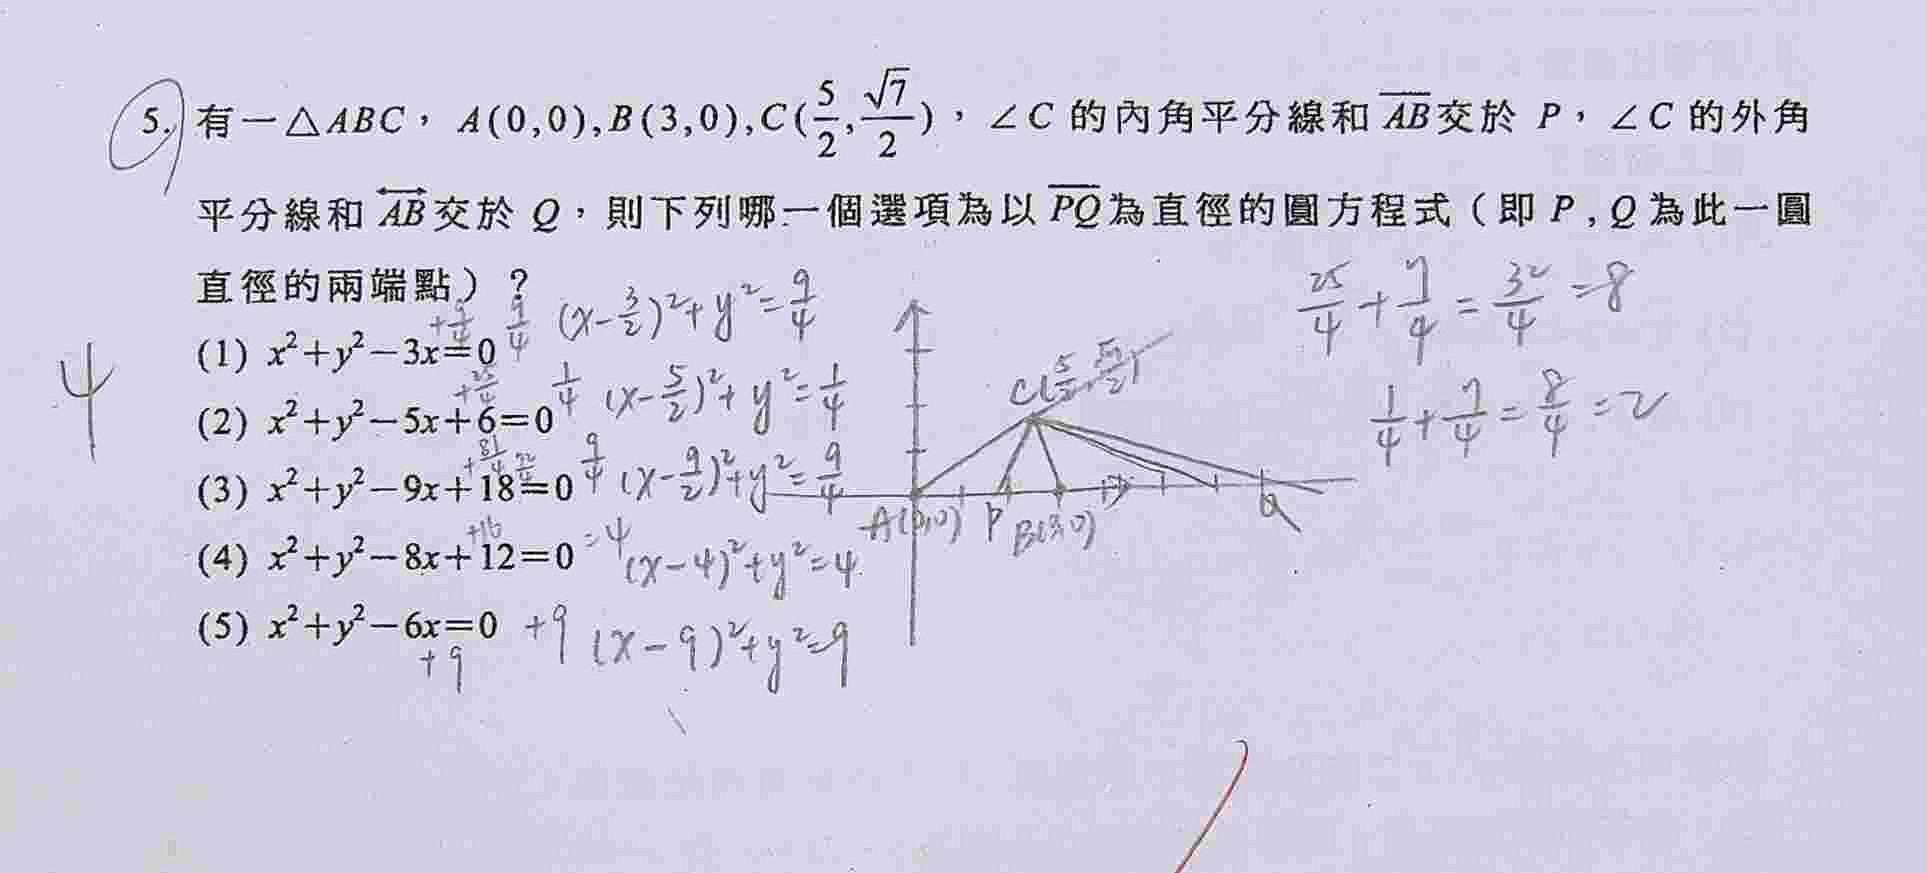 5. 有一△ABC，A(0,0),B(3,0),C(5/2,√7/2)，∠C 的內角平分線和 AB 交於 P，∠C 的外角
平分線和 AB 交於 Q，則下列哪一個選項為以 PQ 為直徑的圓方程式（即 P,Q 為此一圓
直徑的兩端點）？
(1) x²+y²−3x=0
+9/4 9/4 (x-3/2)²+y²=9/4
(2) x²+y²−5x+6=0
+25/4 1/4 (x-5/2)²+y²=1/4
(3) x²+y²−9x+18=0
+81/4 9/4 (x-9/2)²+y²=9/4
(4) x²+y²−8x+12=0
+16 =4 (x-4)²+y²=4
(5) x²+y²−6x=0
+9 +9 (x-9)²+y²=9
4
C(5/2,√7/2)
A(0,0) P B(3,0) Q
25/4+7/4=32/4=8
1/4+7/4=8/4=2